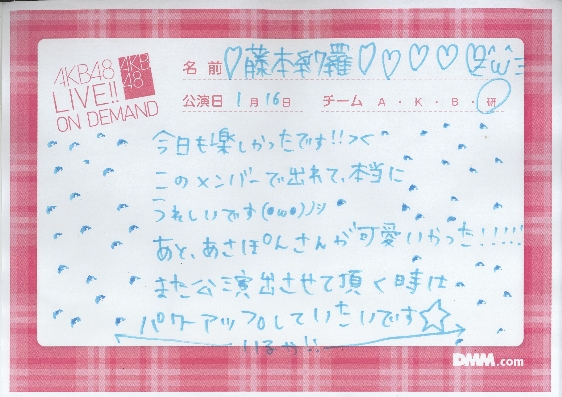 AKB48
LIVE!!
ON DEMAND
AKB
48
名前 ♡藤本紗羅♡♡♡♡♡
公演日 1月16日 チーム A・K・B・研
今日も楽しかったです!!つく
このメンバーで出れて、本当に
うれしいです(●ω●)ﾉｼ
あと、あさぽんさんが可愛いかった!!!!!
また公演出させて頂く時は
パワーアップしていたいです☆
いるや!!
DMM.com